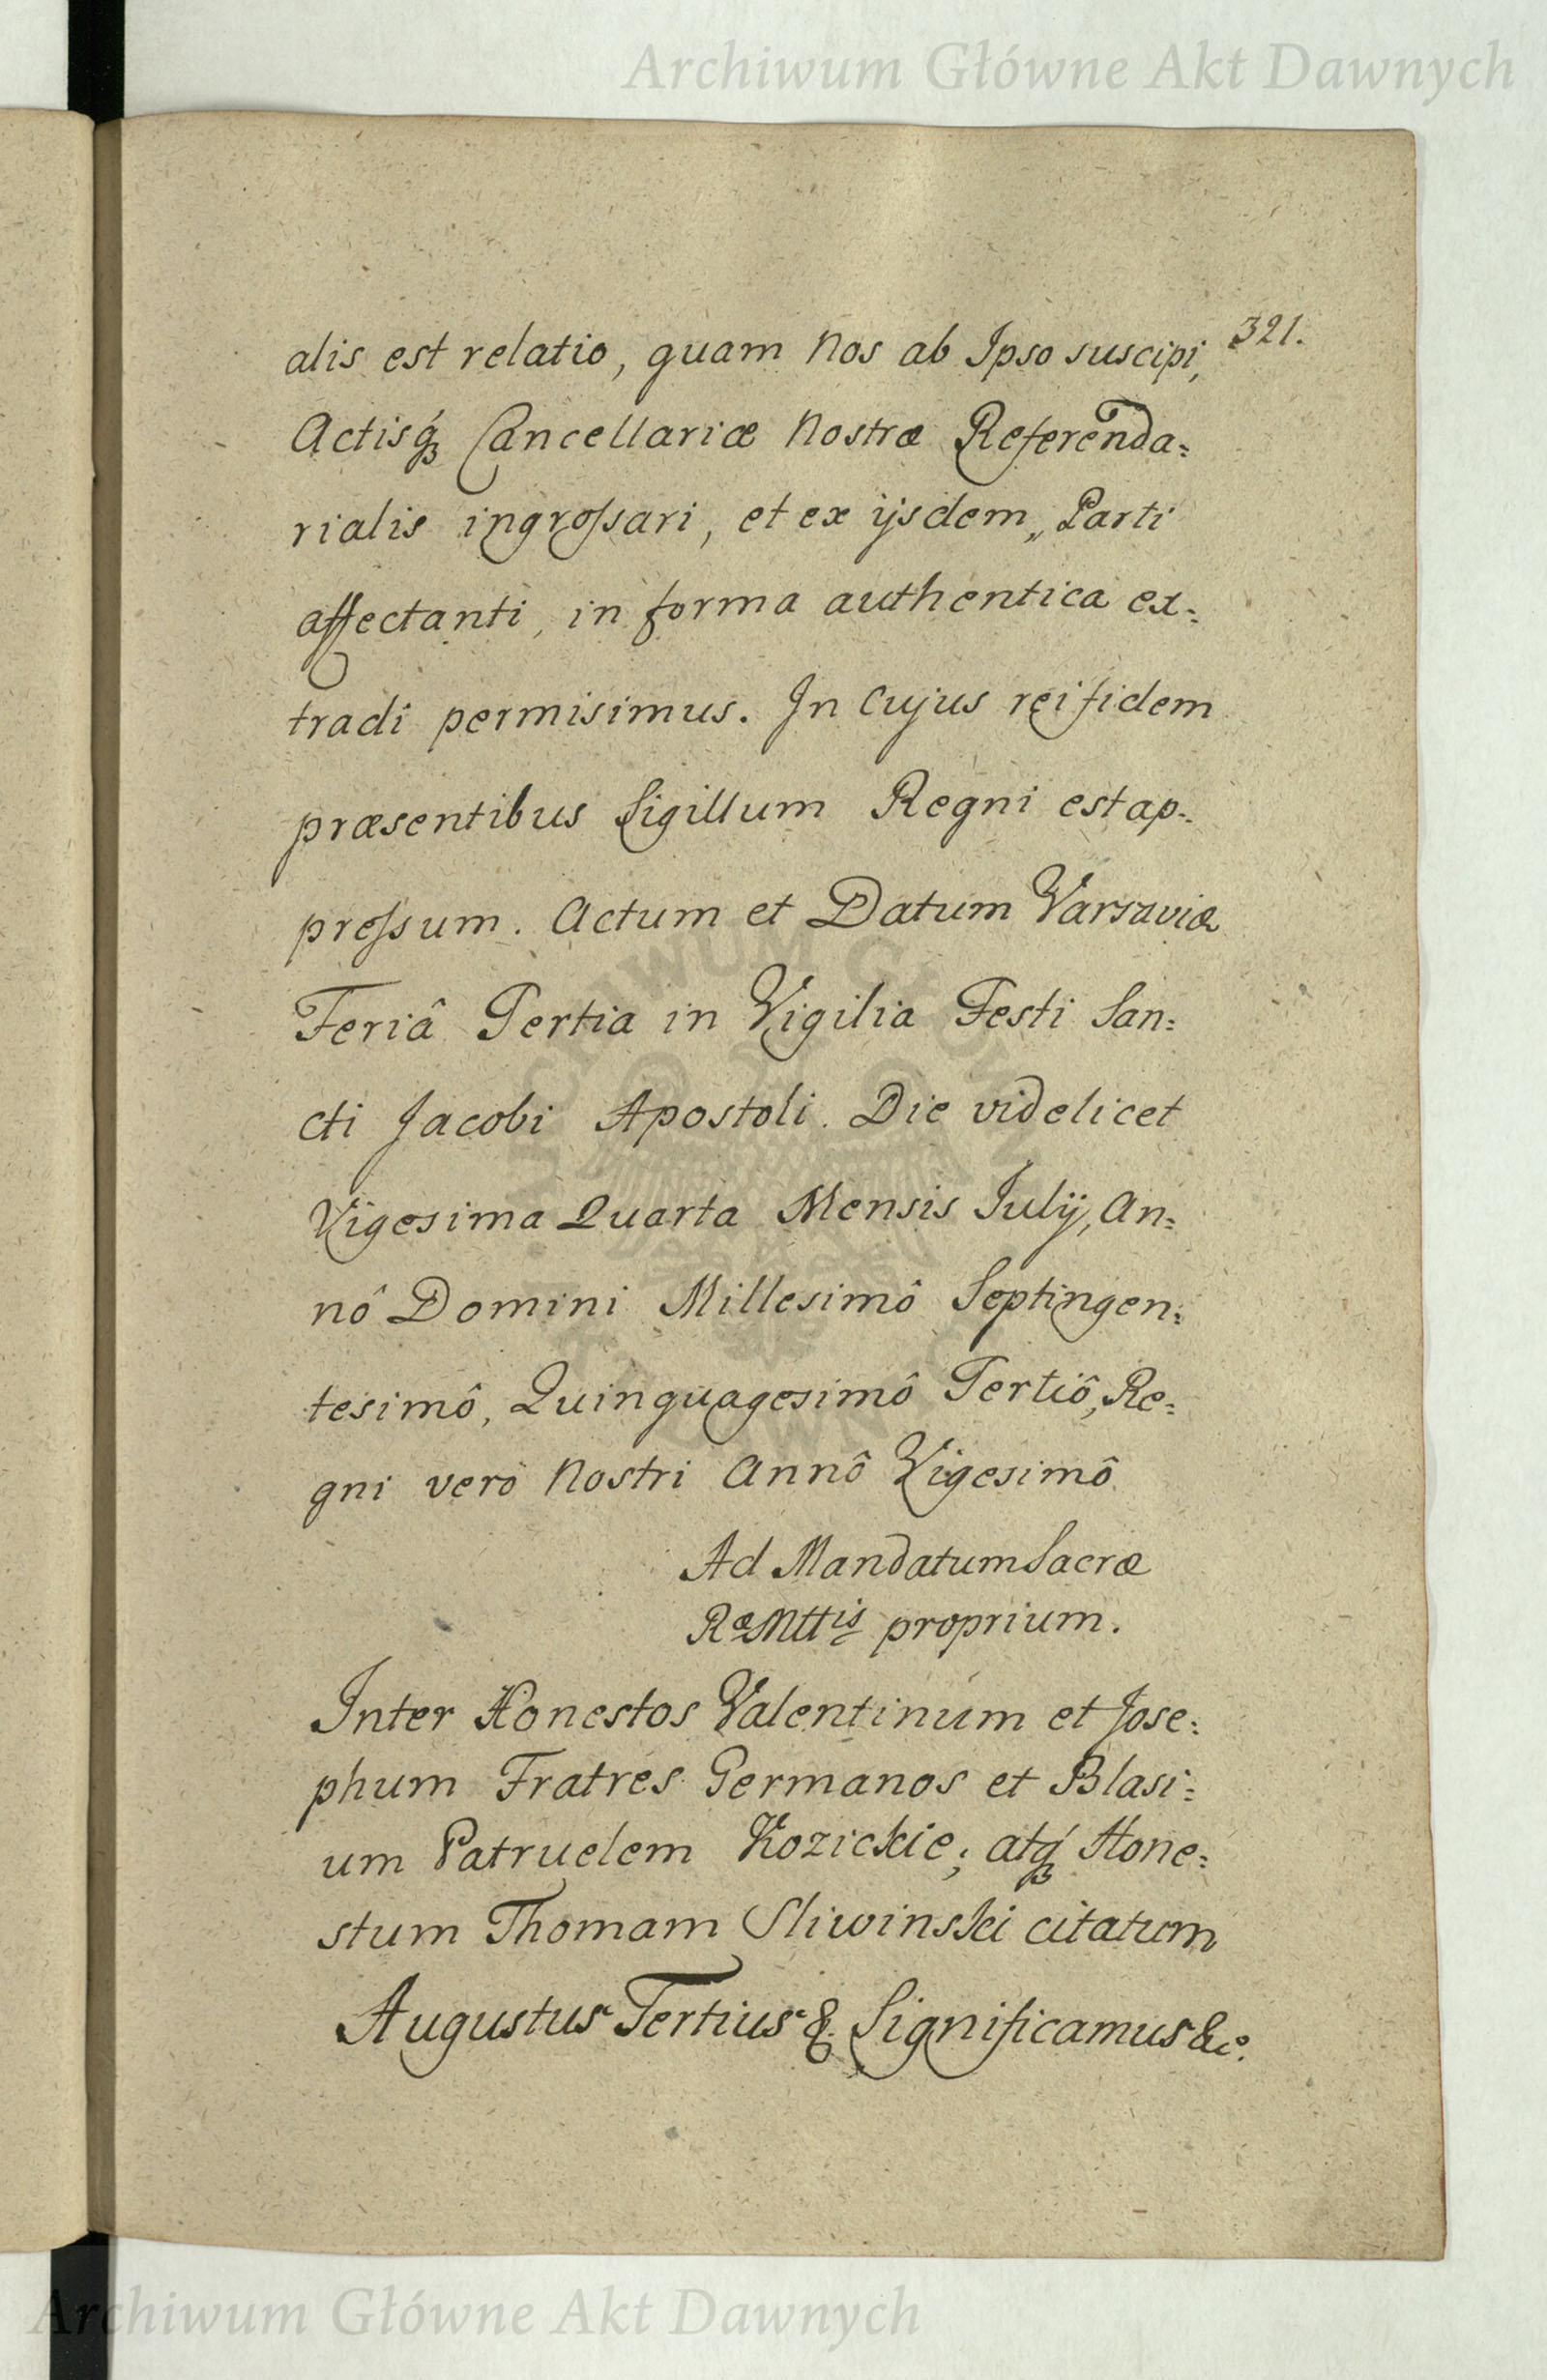 Archiwum Główne Akt Dawnych
321.
alis est relatio, quam Nos ab Ipso suscipi,
Actisq́ꝫ Cancellariæ Nostræ Referenda=
rialis ingroſsari, et ex ijsdem„ Parti
affectanti, in forma authentica ex=
tradi permisimus. In Cujus rei fidem
præsentibus Sigillum Regni est ap=
preſsum. Actum et Datum Varsaviæ
Feriâ Tertia in Vigilia Festi San=
cti Jacobi Apostoli. Die videlicet
Vigesima Quarta Mensis Julij, An=
nô Domini Millesimô Septingen=
tesimô, Quinquagesimô Tertiô, Re=
gni verò Nostri Annô Vigesimô
Ad Mandatum Sacræ
RæMttis proprium.
Inter Honestos Valentinum et Jose=
phum Fratres Germanos et Blasi=
um Patruelem Kozickie; atq́ꝫ Hone=
stum Thomam Sliwinski citatum
Augustus Tertius &. Significamus &c.
Archiwum Główne Akt Dawnych